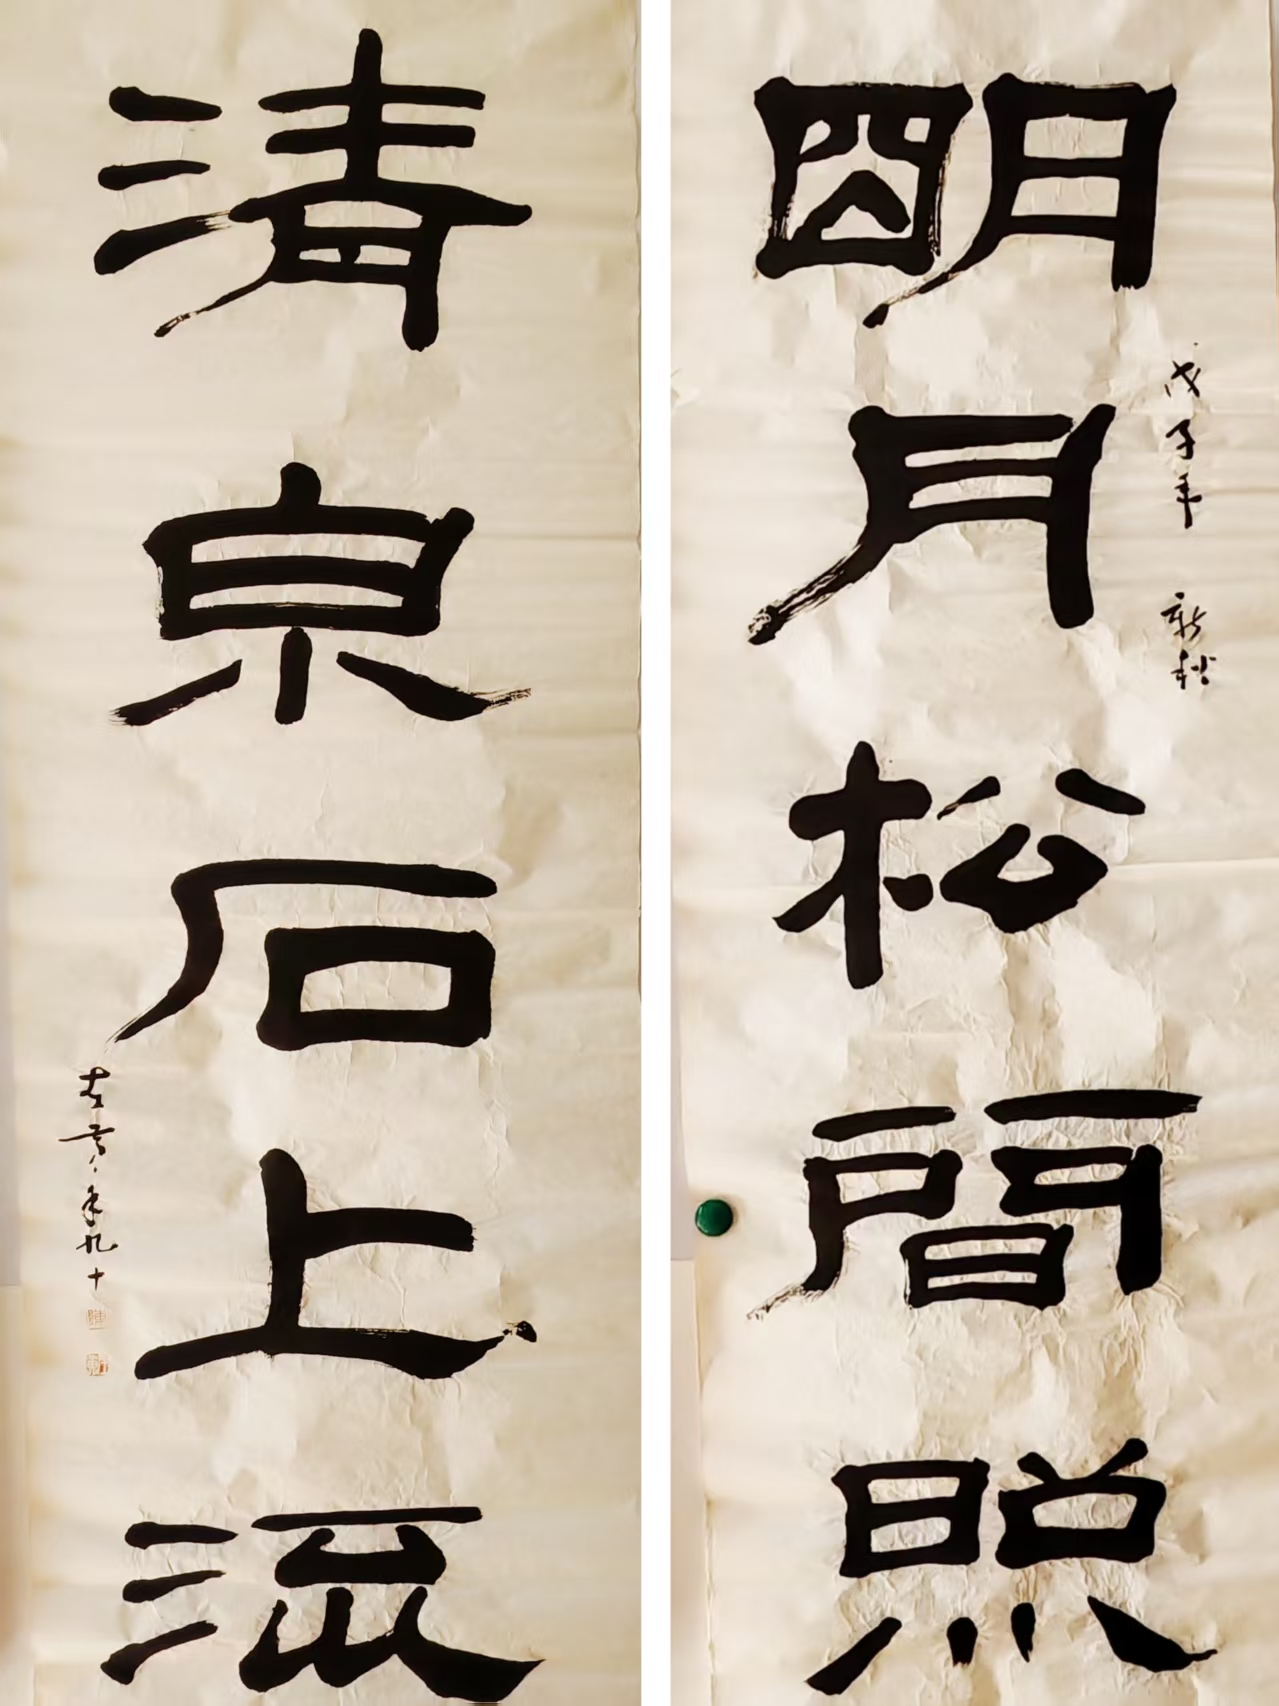 明月松間照
戊子年 新秋
清泉石上流
年九十